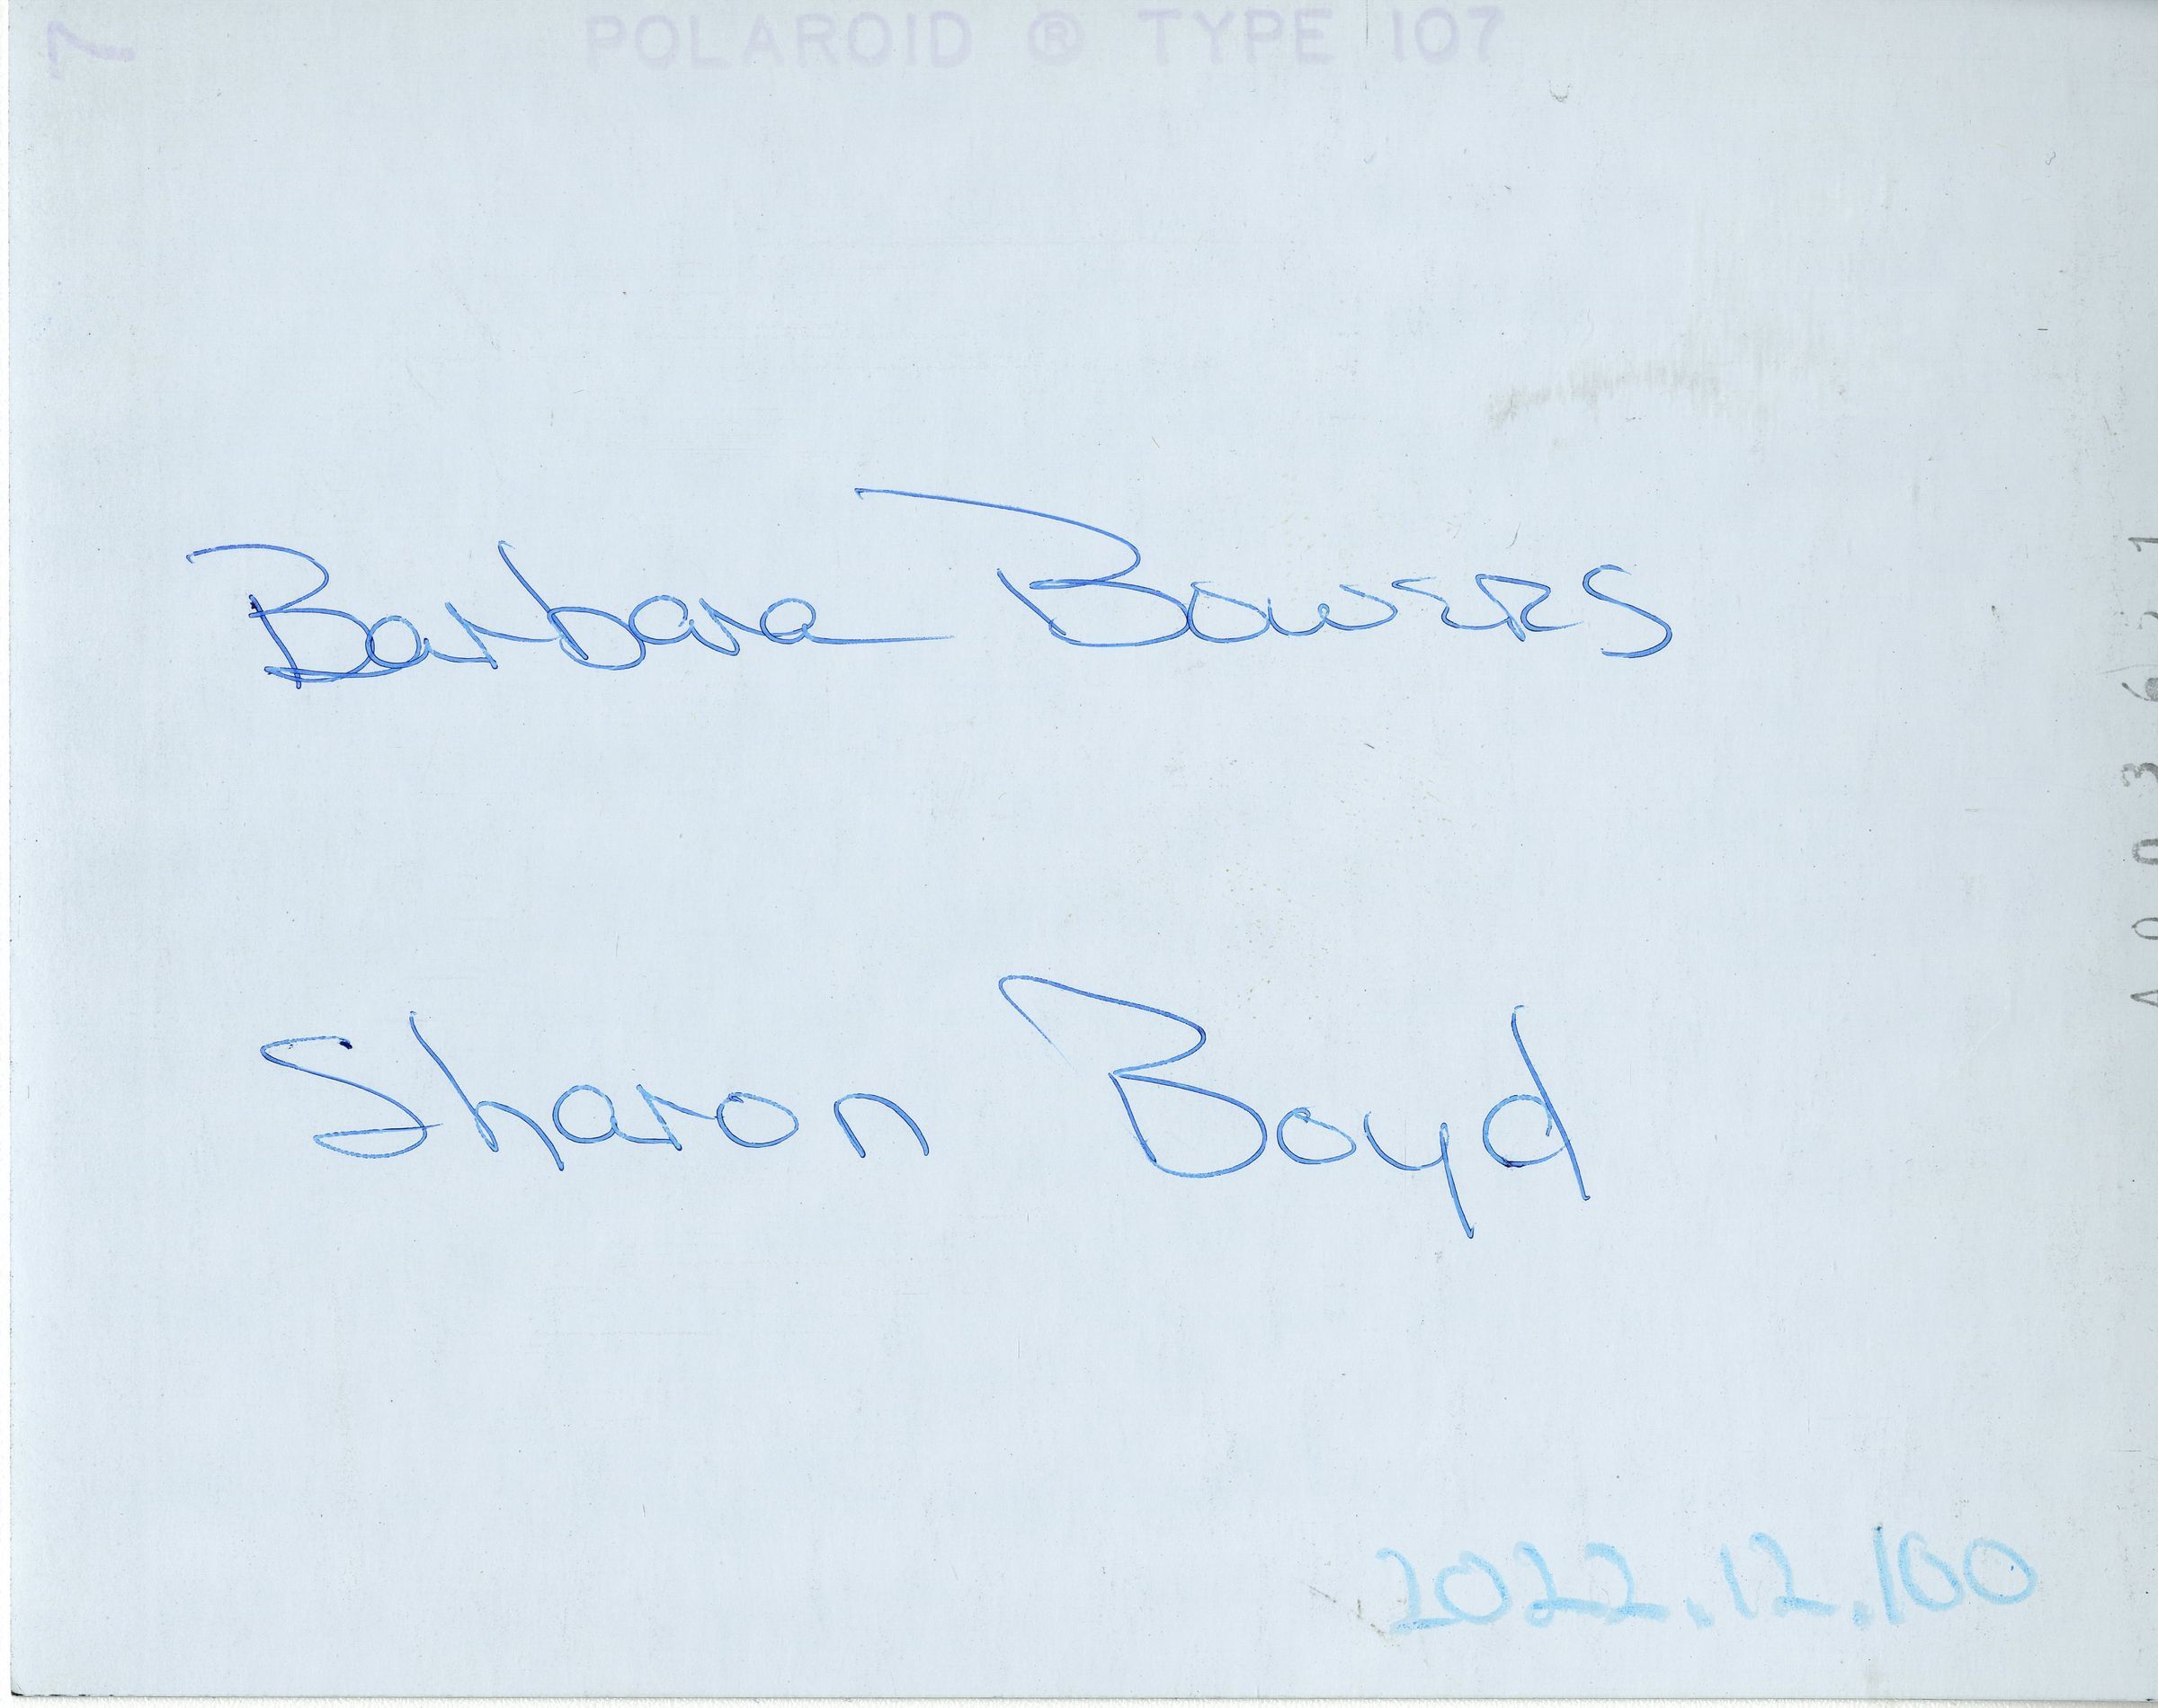 7
POLAROID ® TYPE 107
Barbara Bowers
Sharon Boyd
2022.12.100